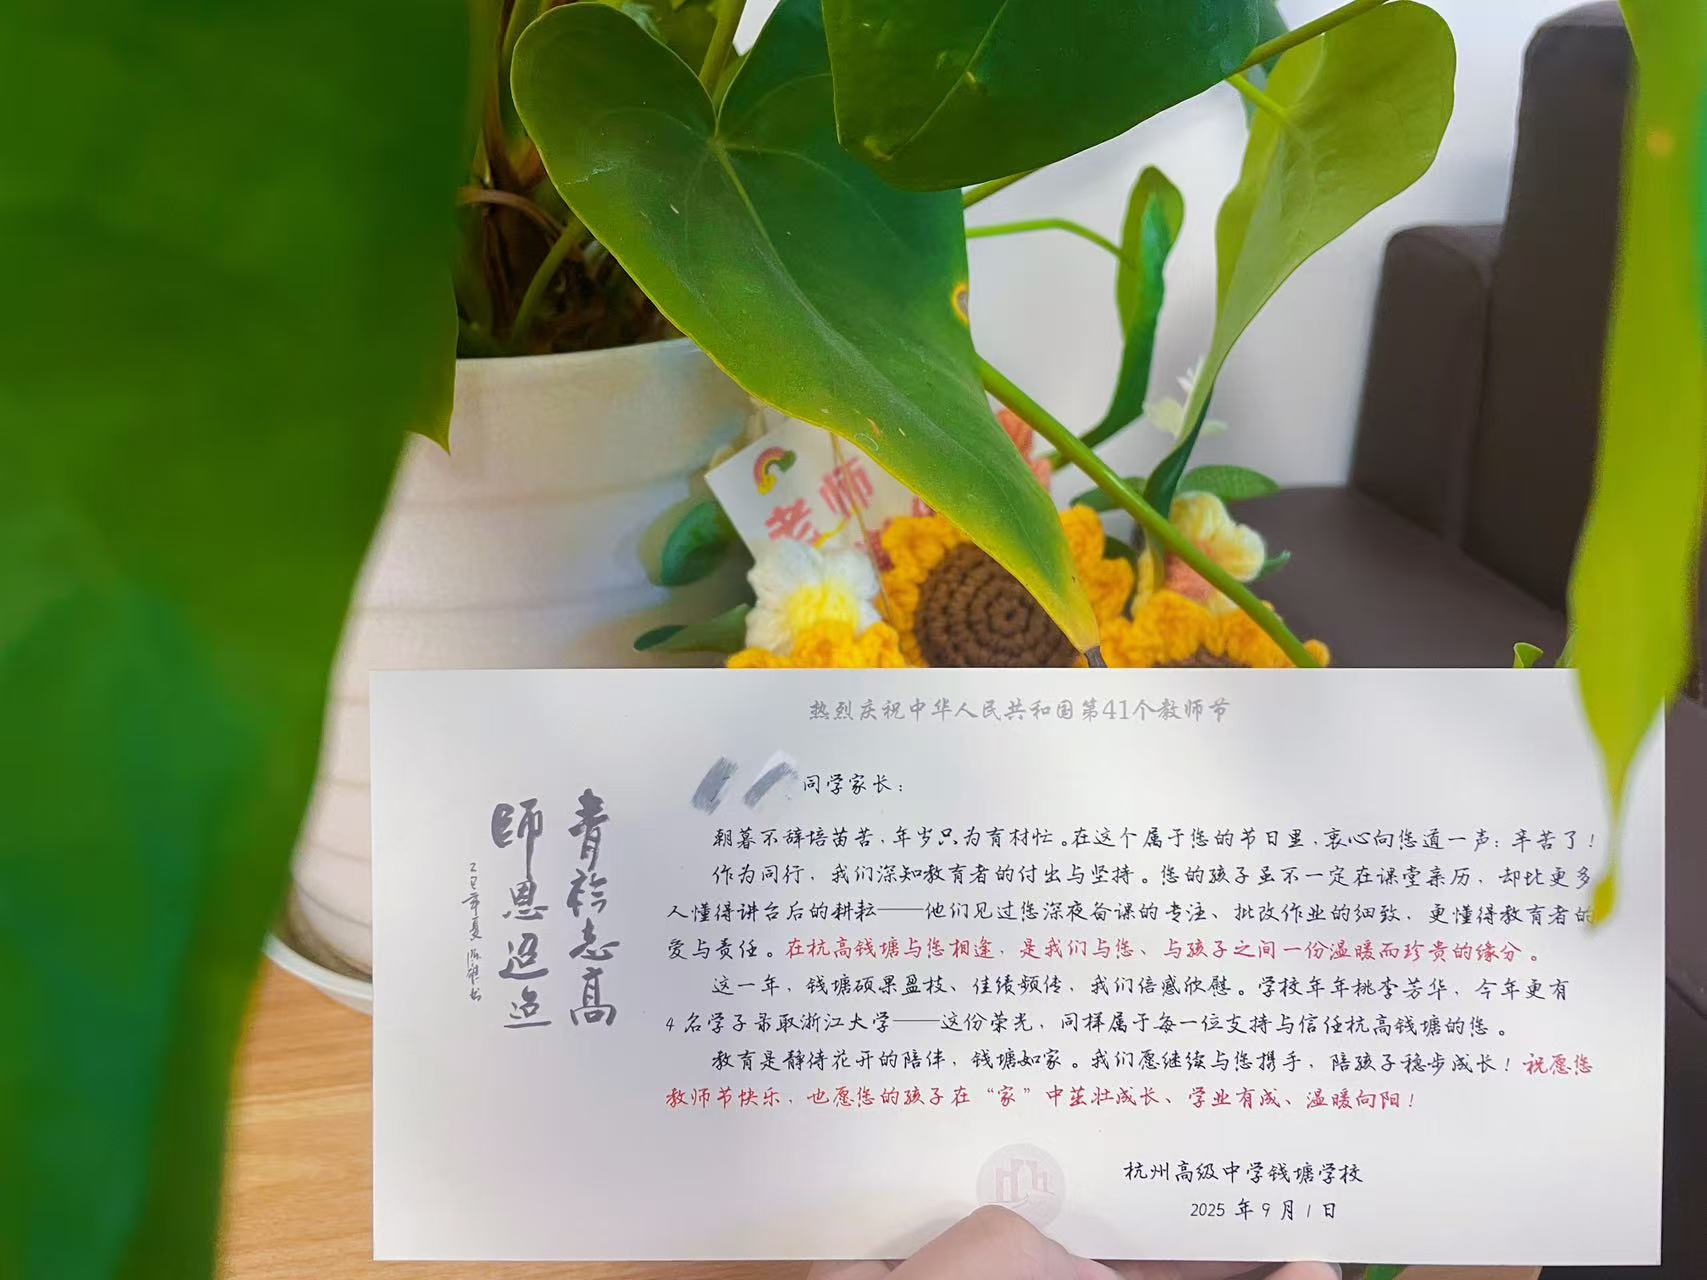 老师
热烈庆祝中华人民共和国第41个教师节
同学家长：
朝暮不辞培苗苦，年岁只为育材忙。在这个属于您的节日里，衷心向您道一声：辛苦了！
作为同行，我们深知教育者的付出与坚持。您的孩子虽不一定在课堂亲历，却比更多
人懂得讲台后的耕耘——他们见过您深夜备课的专注、批改作业的细致，更懂得教育者的
爱与责任。在杭高钱塘与您相逢，是我们与您、与孩子之间一份温暖而珍贵的缘分。
这一年，钱塘硕果盈枝、佳绩频传，我们倍感欣慰。学校年年桃李芳华，今年更有
4名学子录取浙江大学——这份荣光，同样属于每一位支持与信任杭高钱塘的您。
教育是静待花开的陪伴，钱塘如家。我们愿继续与您携手，陪孩子稳步成长！祝愿您
教师节快乐，也愿您的孩子在“家”中茁壮成长、学业有成、温暖向阳！
杭州高级中学钱塘学校
2025年9月1日
青衿志高
師恩迢迢